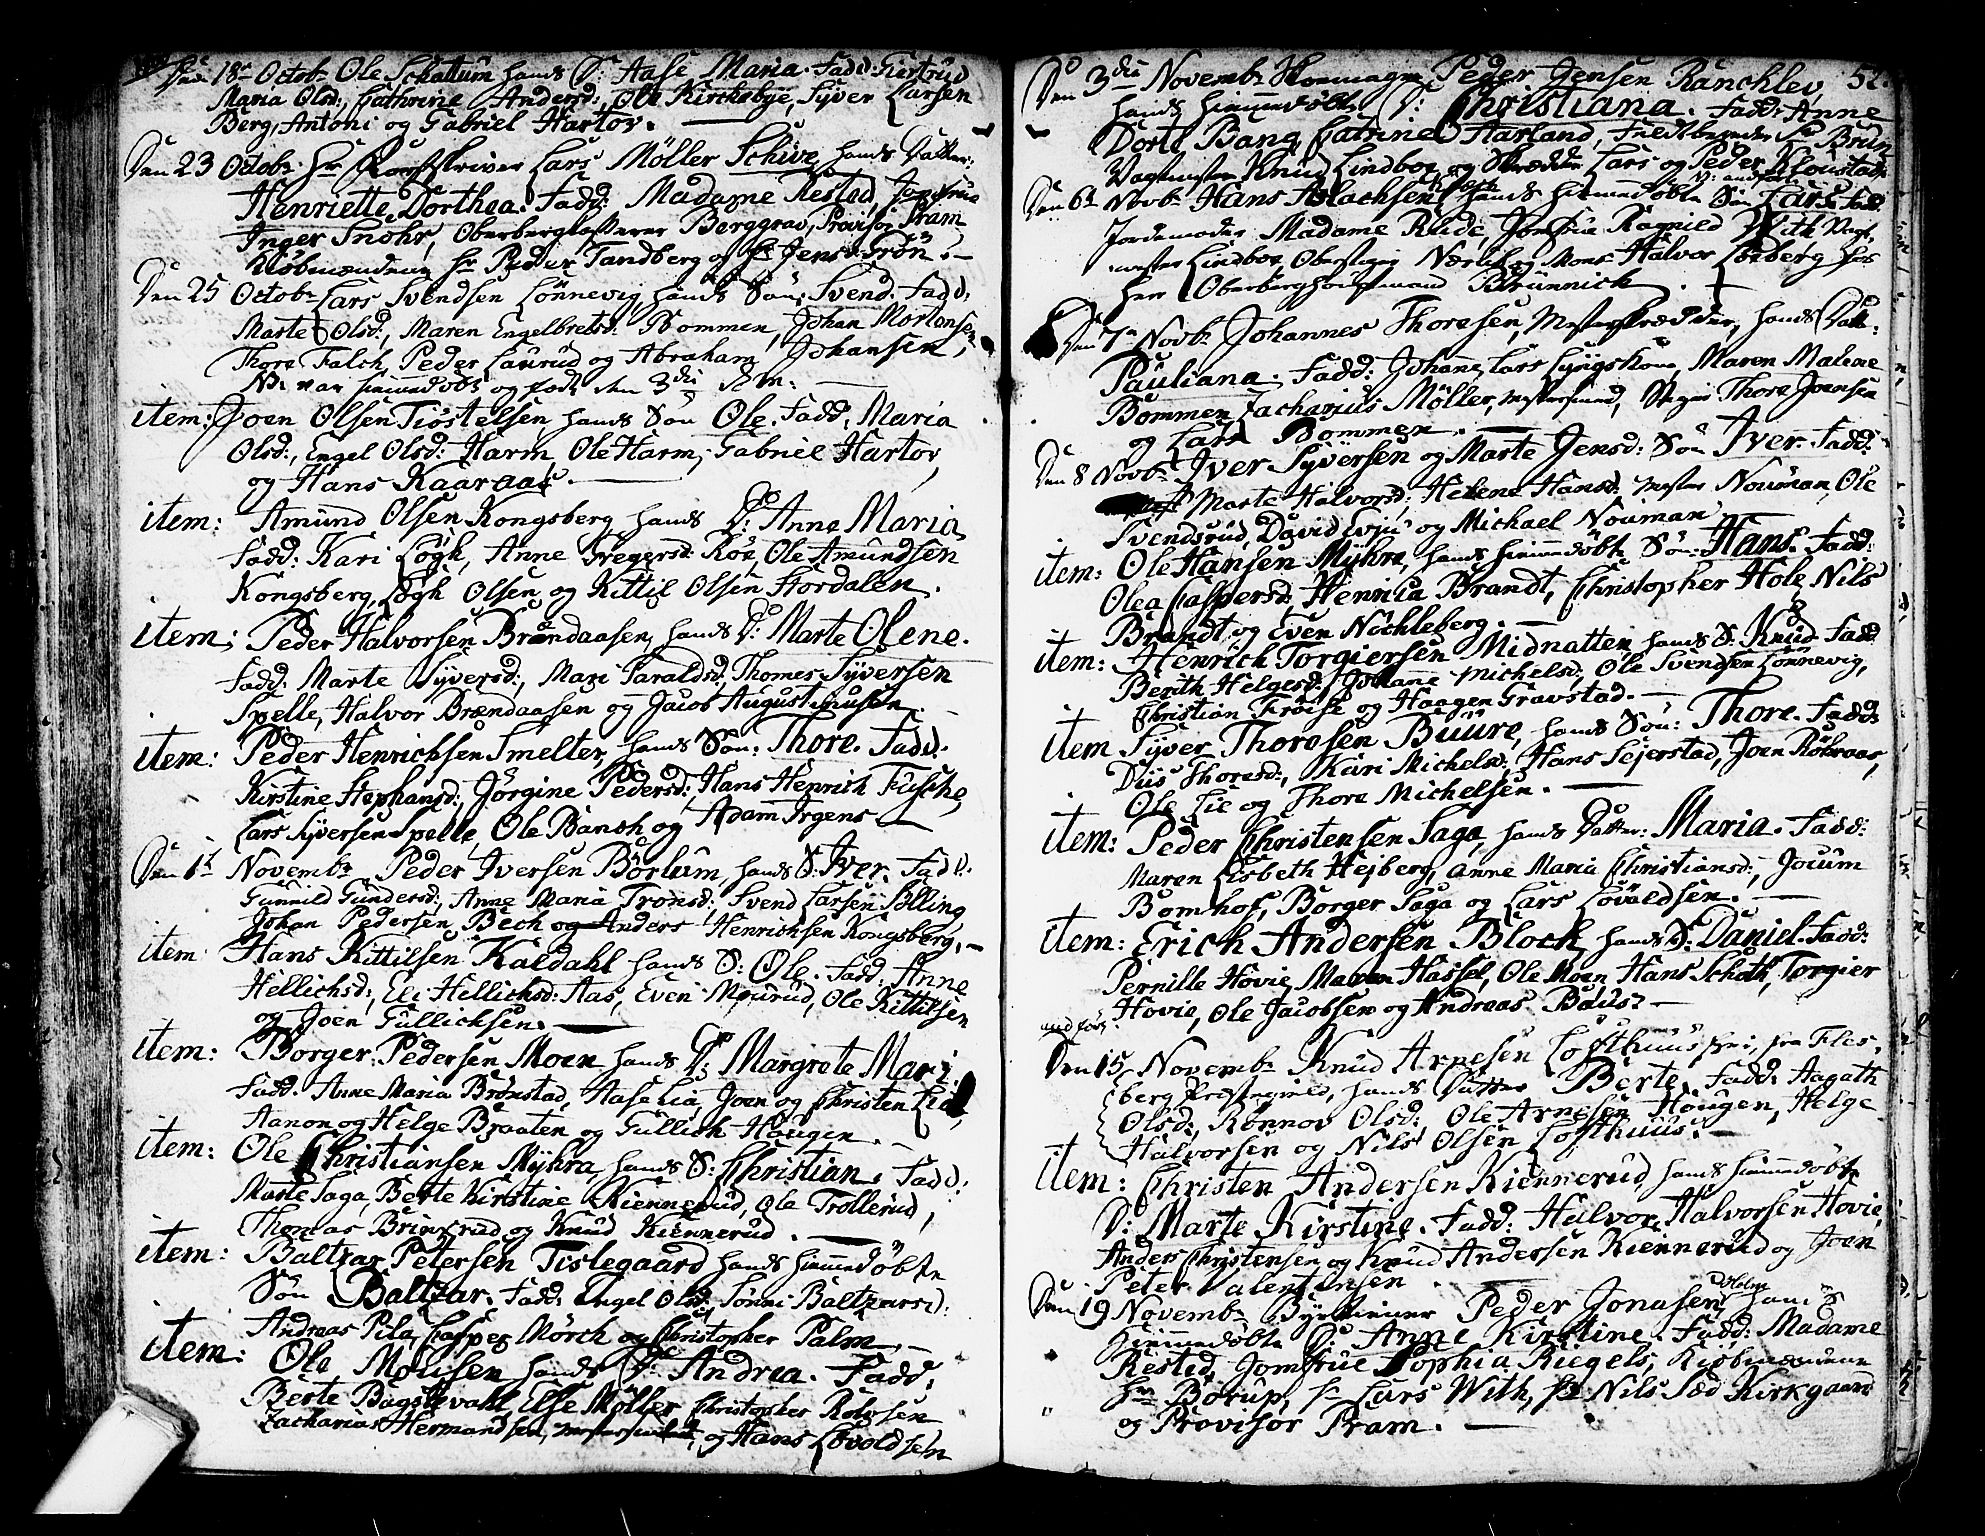 Den 18de Octobr Ole Schattum hands D: Aase Maria. Fadd: Giertrud
Maria Olsd:, Cathrine Andersd:, Ole Kirchebye, Syver Larsen
Berg, Antoni og Gabriel Hartov.
Den 23 Octobr Hr Lars Möller Schive, hands Datter:
Henriette Dorthea. Fadd: Madame Restad, Jomfrue
Inger Snohr, Berggrav, Provisor Pram
Kiöbmændene Hr Peder Tandberg og Hr Jens Grön.
Den 25 Octobr Lars Svendsen Lönnevig hands Sön: Svend. Fadd:
Marte Olsd:, Maren Engelbretsd: Bommen, Johan Mortensen
Thore Falch, Peder Laurud og Abraham Johansen,
NB. var hiemmedöbt og födt den 3die dito.
item: Joen Olsen Tiöstelsen hands Sön Ole. Fadd: Maria
Olsd:, Engel Olsd: Harm, Ole Harm, Gabriel Hartov,
og Hans Kaaraas.
item: Amund Olsen Kongsberg hands D: Anne Maria
Fadd: Kari Lögh, Anne Gregersd: Roe, Ole Amundsen
Kongsberg, Lögh Olsen og Kittil Olsen Hordalen.
item: Peder Halvorsen Brændaasen, hands D: Marte Olene.
Fadd: Marte Syversd:, Mari Haraldsd:, Thomes Syversen
Spelle, Halvor Brændaasen og Jacob Augustinusen.
item: Peder Henrichsen Smelter, hands Sön: Thore. Fadd:
Kirstine Stephansd:, Jörgine Pedersd:, Hans Henrich Fusche,
Lars Syversen Spelle, Ole Bansh og Adam Irgens
Den 1te Novembr Peder Iversen Börlum, hands S: Iver. Fadd:
Gunnild Gundersd:, Anne Maria Tronsd:, Svend Larsen Polling,
Johan Pedersen Bech og Anders Henrichsen Kongsberg.
item Hans Kittilsen Kaldahl hands S: Ole. Fadd: Anne
Hellichsd:, Eli Hellichsd: Aas, Even Mourud, Ole Kittilsen
og Joen Gullichsen.
item: Borger Pedersen Moen hands D: Margrete Mari.
Fadd: Anne Maria Brönstad, Aase Lia, Joen og Christen Lia,
Aanon og Helge Braaten og Gullich Haugen.
item: Ole Christiansen Myhra, hands S: Christian. Fadd:
Marte Saga, Berte Kirstine Kiennerud, Ole Trollerud,
Thomas Brinkrud og Knud Kiennerud.
item: Baltzar Petersen Tislegaard hands hiemmedöbte
Sön Baltzar. Fadd: Engel Olsd:, Sönni Baltzarsd:
Andreas Pila, Casper Mörch og Christopher Palm
item: Ole Molissen hands D: Andrea. Fadd:
Berte Bagstevahl, Else Möller, Christopher Rolvsen
Zacharias Hermandsen, og Hans Lövoldsen
52.
Den 3die Novembr Peder Jensen Ranchlev
hands hiemmedöbte D: Christiana. Fadd: Anne
Dortl Bang, Catrine Aarland, Brun
Vagtmester Knud Lindboe, og Lars og Peder Kloustad.
Den 6te Novbr Hans Aslachsen hands hiemmedöbte Sön Lars. Fadd:
Jordemoder Madame Rude, Jomfrue Ragnild With, Vagt-
mester Lindboe, Oberstiger Nærul og Mons: Halvor Loeberg hos
Herr Oberberghauptmand Brünnick.
Den 7de Novbr Johannes Thoresen, Mesterskrædder, hands Datt:
Pauliana. Fadd: Johane Lars Lyngskou, Maren Malene
Bommen, Zacharius Möller, Thore Joensen
og Lars Bommen.
Den 8 Novbr Iver Syversen og Marte Jensd: Sön Iver. Fadd:
Marte Halvorsd:, Helene Hansd: Mester Nouman, Ole
Svendsrud, David Evju og Michael Nouman
item: Ole Hansen Myhre, hands hiemmedöbte Sön: Hans. Fadd:
Olea Caspersd:, Henrica Brandt, Christopher Hole, Nils
Brandt og Even Nichleberg.
item: Henrich Torgiersen Midnatten hands S: Knud. Fadd
Berith Helgesd:, Johane Michelsd:, Ole Svendsen Lönnevig,
Christian Fröise og Haagen Gravstad.
item Syver Thoresen Buure, hands Sön: Thore. Fadd:
Duis Thoresd:, Kari Michelsd:, Hans Sejerstad, Joen Röbraas,
Ole Lie og Thore Michelsen.
item: Peder Christensen Saga, hands Datter: Maria. Fadd:
Maren Lisbeth Hejberg, Anne Maria Christiansd:, Jocum
Bomhof, Borger Saga og Lars Lövaldsen.
item: Erich Andersen Block, hands S: Daniel. Fadd:
Pernille Hovie, Maren Hassel, Ole Moen, Hans Schoth, Torgier
Hovie, Ole Jacobsen og Andreas Baus.
Den 15 Novembr Knud Arnesen Löfthuus, fra Fles-
berg Præstegield, hands Datter Berte. Fadd: Aagath
Olsd:, Rönnov Olsd:, Ole Arnesen Haugen, Helge
Halvorsen og Nils Olsen Löfthuus.
item: Christen Andersen Kiennerud, hands hiemmedöbte
D: Marte Kirstine. Fadd: Halvor Halvorsen Hovie,
Anders Christensen og Knud Andersen Kiennerud og Joen
Peter Valentinsen.
Den 19 Novembr Byeskriver Peder Jonasen Holm hands
hiemmedöbte D: Anne Kirstine. Fadd: Madame
Restad, Jomfrue Sophia Riegels, Kiöbmændene
Hr Borup, Hr Lars With, Hr Nils Sæd Kirkgaard
og Provisor Pram.